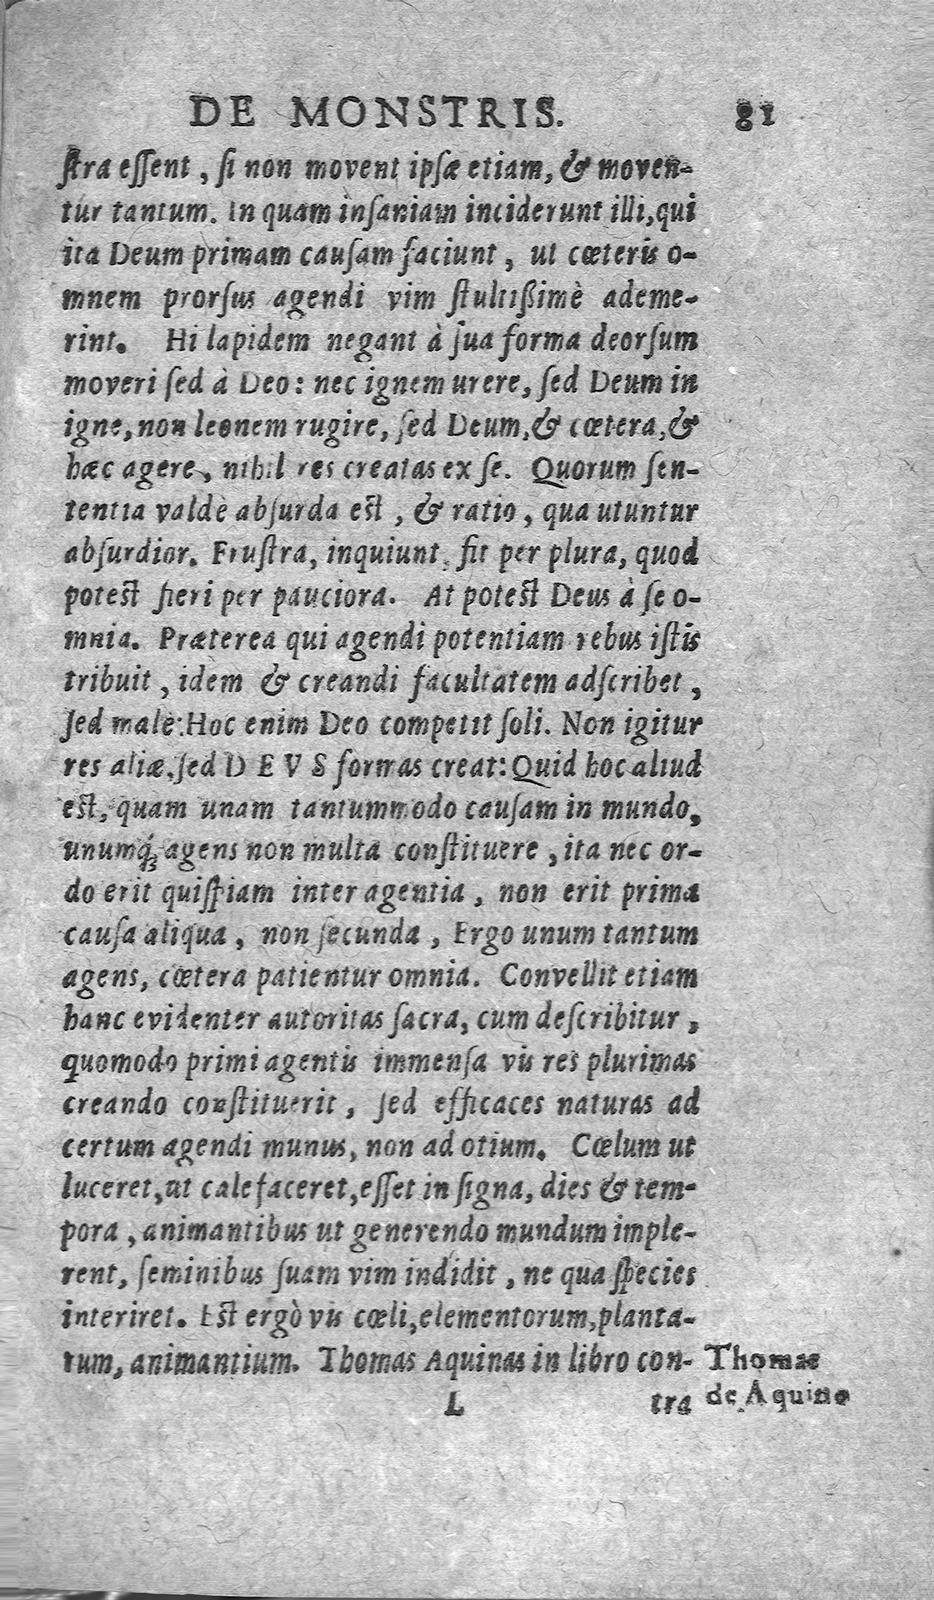 DE MONSTRIS. 81
ſtra eſſent, ſi non movent ipſæ etiam, & moven-
tur tantum. In quam inſaniam inciderunt illi, qui
ita Deum primam cauſam faciunt, ut cœteris o-
mnem prorſus agendi vim ſtultißimè ademe-
rint. Hi lapidem negant à ſua forma deorſum
moveri ſed à Deo: nec ignem urere, ſed Deum in
igne, non leonem rugire, ſed Deum, & cœtera, &
hæc agere, nihil res creatas ex ſe. Quorum ſen-
tentia valdè abſurda eſt, & ratio, qua utuntur
abſurdior. Fruſtra, inquiunt, fit per plura, quod
poteſt fieri per pauciora. At poteſt Deus à ſe o-
mnia. Præterea qui agendi potentiam rebus iſtis
tribuit, idem & creandi facultatem adſcribet,
ſed malè: Hoc enim Deo competit ſoli. Non igitur
res aliæ, ſed DEVS formas creat: Quid hoc aliud
eſt, quam unam tantummodo cauſam in mundo,
unumq́ꝫ agens non multa conſtituere, ita nec or-
do erit quiſpiam inter agentia, non erit prima
cauſa aliqua, non ſecunda, Ergo unum tantum
agens, cœtera patientur omnia. Convellit etiam
hanc evidenter autoritas ſacra, cum deſcribitur,
quomodo primi agentis immenſa vis res plurimas
creando conſtituerit, ſed efficaces naturas ad
certum agendi munus, non ad otium. Cœlum ut
luceret, ut calefaceret, eſſet in ſigna, dies & tem-
pora, animantibus ut generendo mundum imple-
rent, ſeminibus ſuam vim indidit, ne qua ſpecies
interiret. Eſt ergò vis cœli, elementorum, planta-
rum, animantium. Thomas Aquinas in libro con-
Thomas
de Aquino
L tra